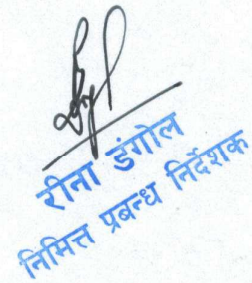 रीना डंगोल
निमित्त प्रबन्ध निर्देशक